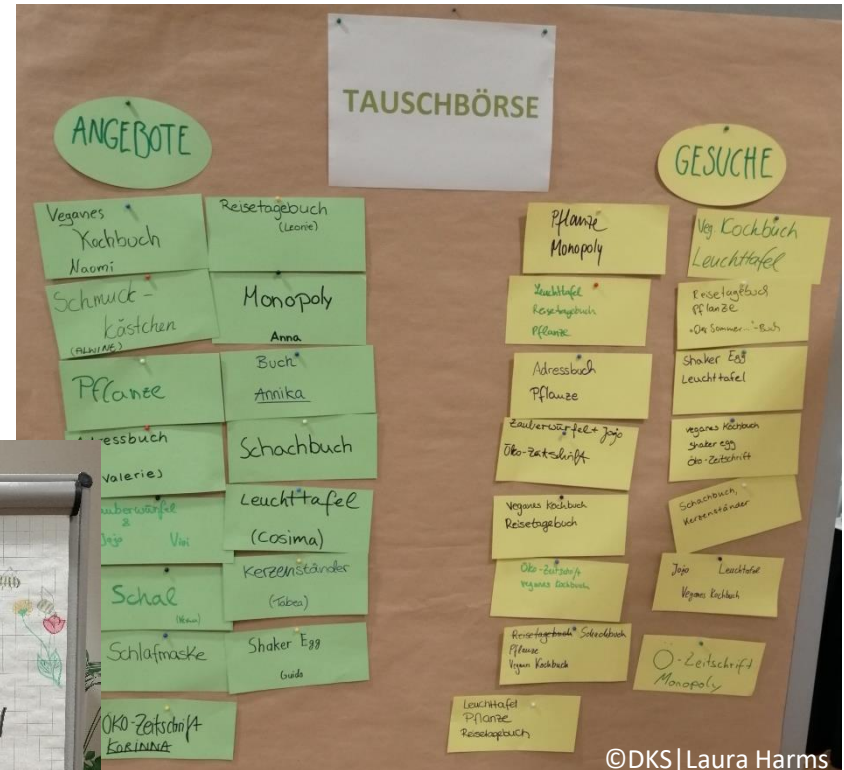 TAUSCHBÖRSE
ANGEBOTE
Veganes
Kochbuch
Naomi
Schmuck-
kästchen
(ALWINE)
Pflanze
ressbuch
Valerie)
auberwürfel
&
Jojo Vivi
Schal
Schlafmaske
ÖKO-Zeitschrift
KORINNA
Reisetagebuch
(Leonie)
Monopoly
Anna
Buch
Annika
Schachbuch
Leuchttafel
(Cosima)
Kerzenständer
(Tabea)
Shaker Egg
Guido
GESUCHE
Pflanze
Monopoly
Leuchttafel
Reisetagebuch
Pflanze
Adressbuch
Pflanze
Zauberwürfel + Jojo
Öko-Zeitschrift
Veganes Kochbuch
Reisetagebuch
Öko-Zeitschrift
veganes Kochbuch
Reisetagebuch Schachbuch
Pflanze
Vegan Kochbuch
Leuchttafel
Pflanze
Reisetagebuch
Veg. Kochbuch
Leuchttafel
Reisetagebuch
Pflanze
"Der Sommer..."-Buch
Shaker Egg
Leuchttafel
veganes Kochbuch
shaker egg
öko-Zeitschrift
Schachbuch,
Kerzenständer
Jojo Leuchttafel
Veganes Kochbuch
Ö-Zeitschrift
Monopoly
©DKS|Laura Harms